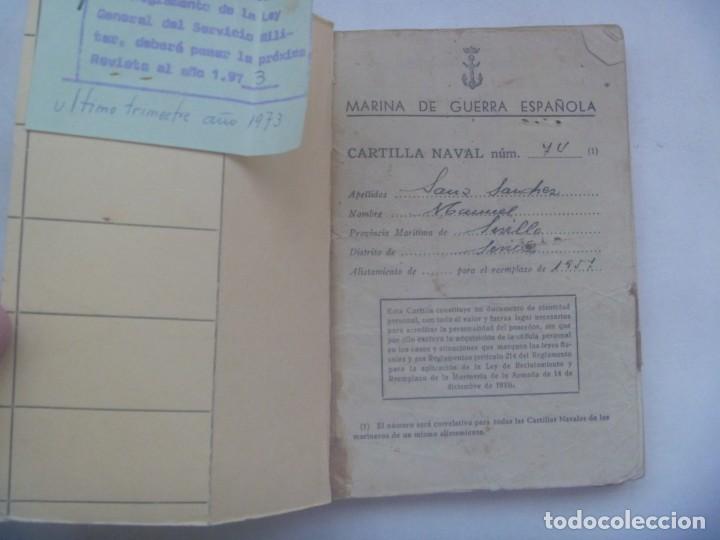 Reglamento de la Ley
General del Servicio Mili-
tar, deberá pasar la próxima
Revista al año 1.97 3
ultimo trimestre año 1973
MARINA DE GUERRA ESPAÑOLA
CARTILLA NAVAL núm. 70 (1)
Apellidos Sanz Sanchez
Nombre Manuel
Provincia Marítima de Sevilla
Distrito de Sevilla
Alistamiento de ....... para el reemplazo de 1957
Esta Cartilla constituye un documento de identidad
personal, con todo el valor y fuerza legal necesarios
para acreditar la personalidad del poseedor, sin que
por ello excluya la adquisición de la cédula personal
en los casos y situaciones que marquen las leyes fis-
cales y sus Reglamentos (artículo 214 del Reglamento
para la aplicación de la Ley de Reclutamiento y
Reemplazo de la Marinería de la Armada de 14 de
diciembre de
(1) El número será correlativo para todas las Cartillas Navales de los
marineros de un mismo alistamiento.
todocoleccion
todocoleccion.net